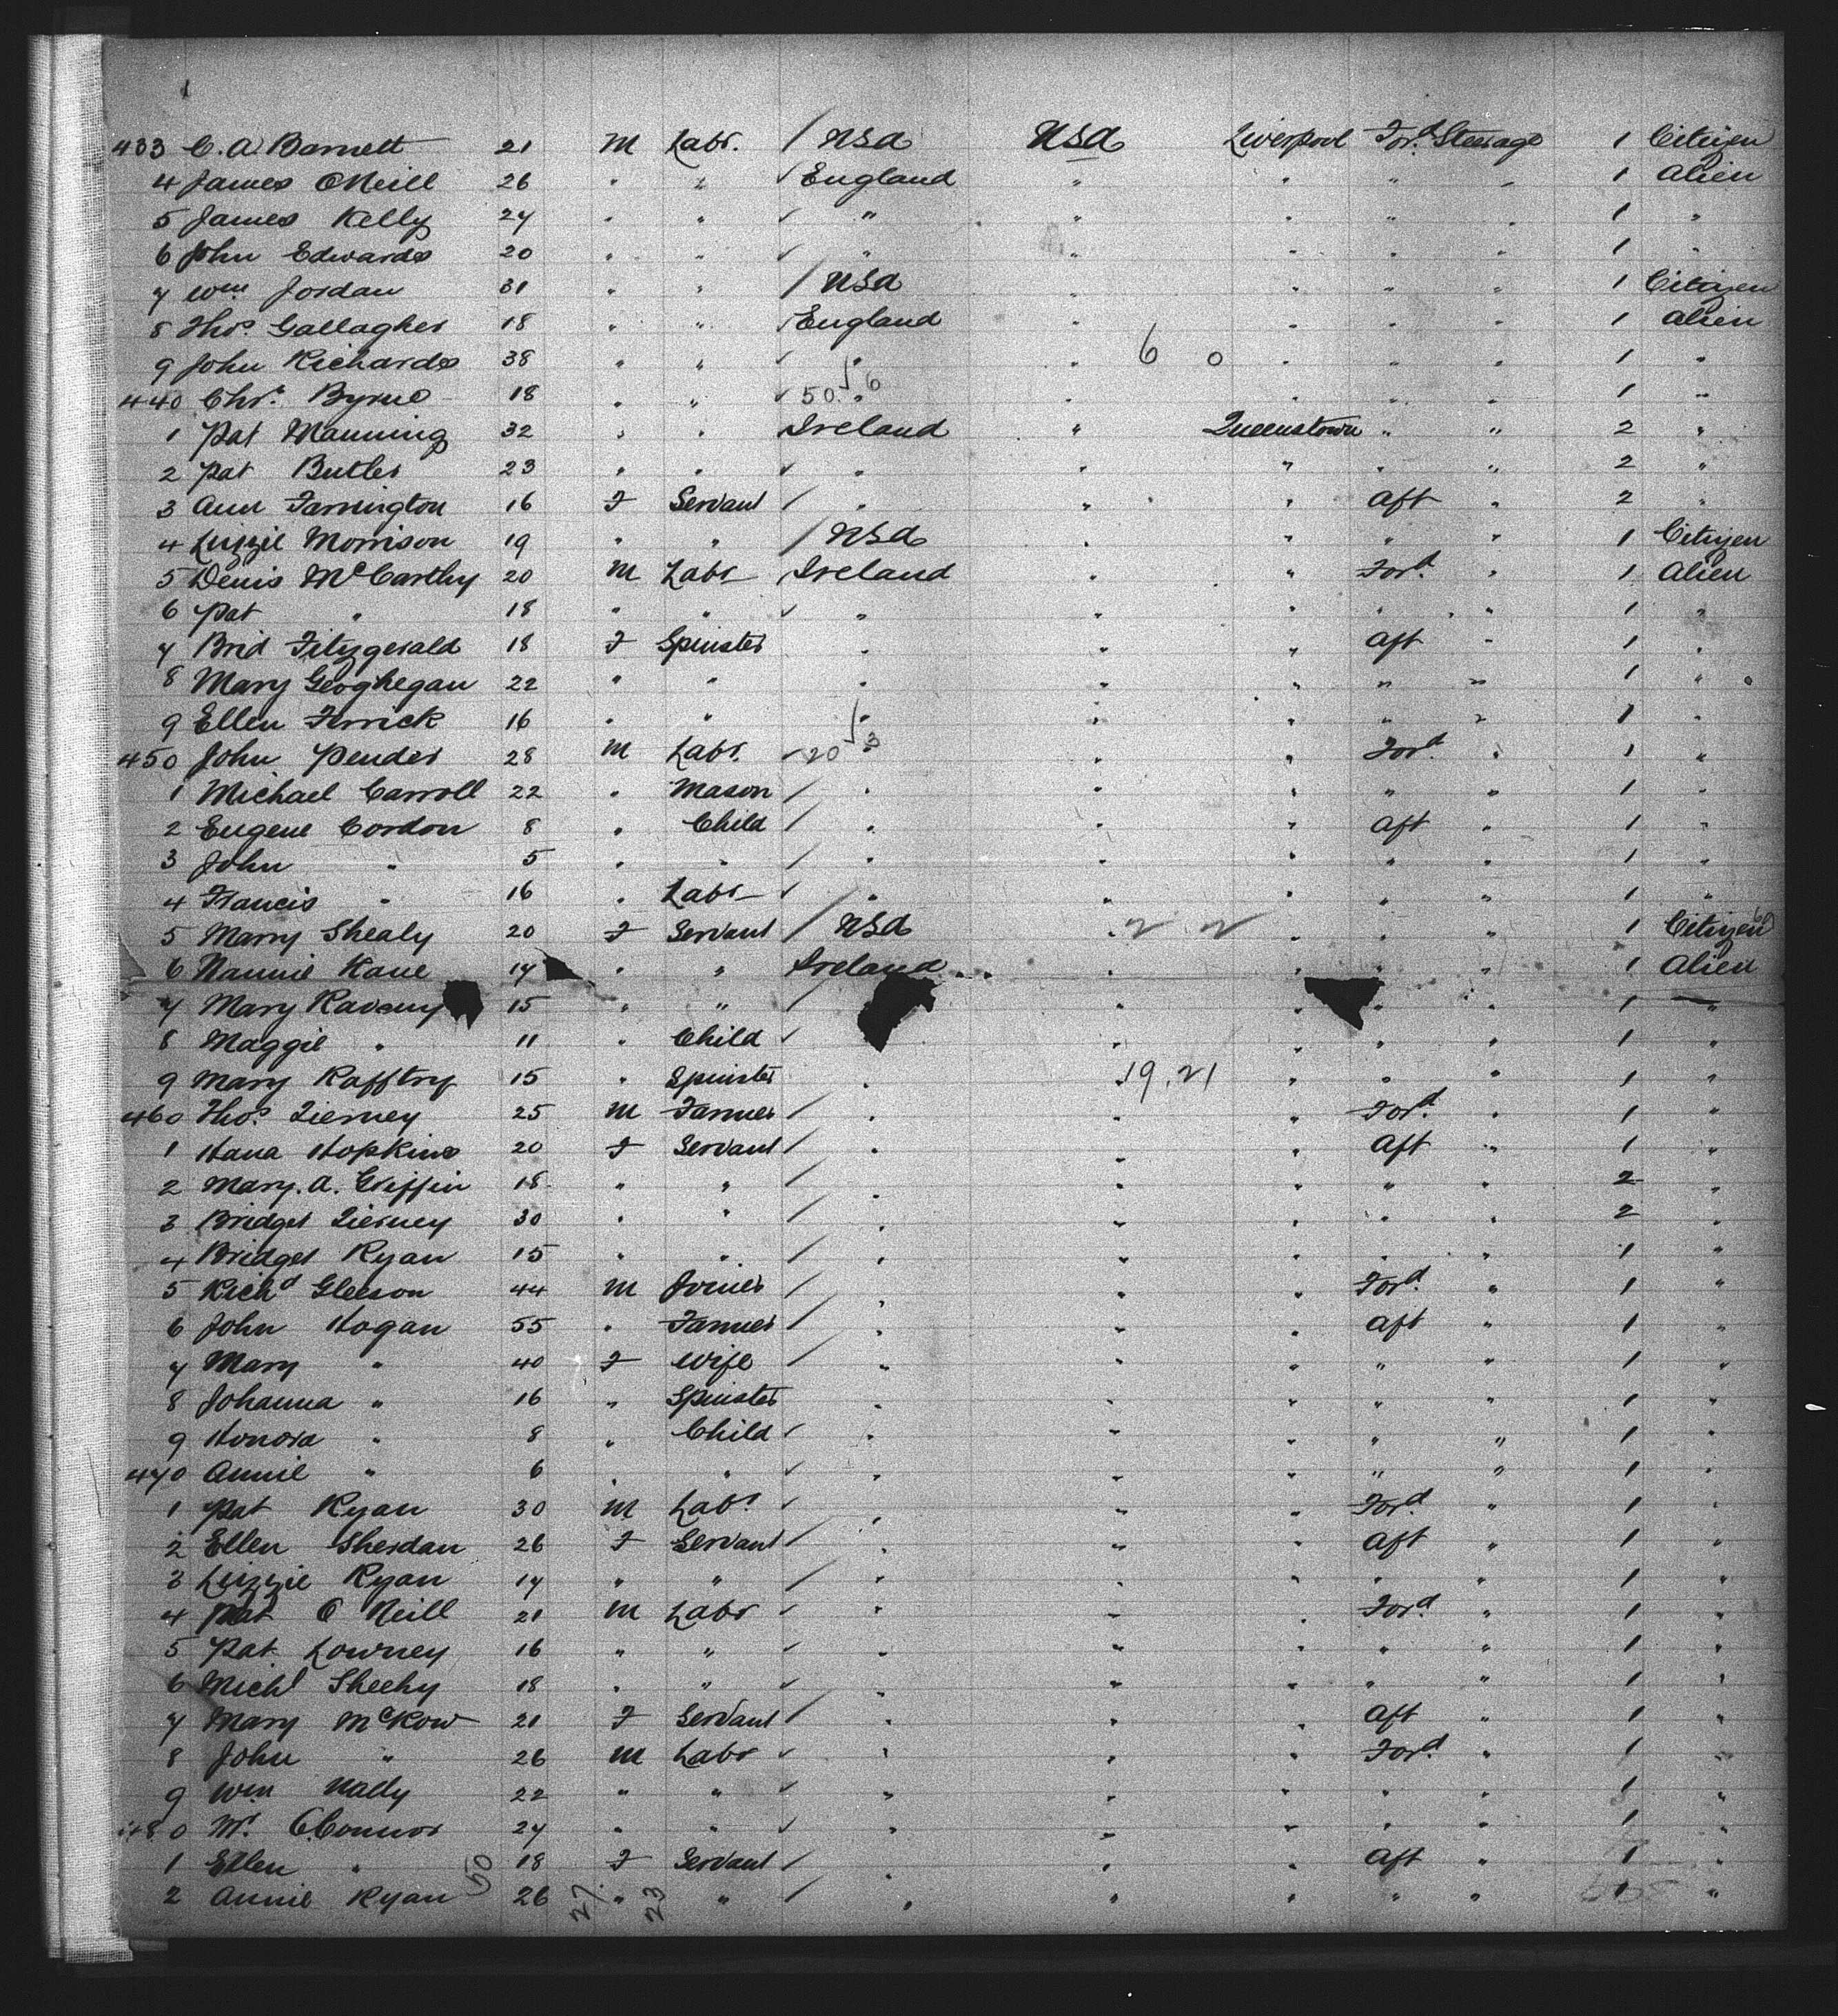 433 C. A. Barnett 21 M Labr. / USA USA Liverpool Ford. Steerage 1 Citizen
4 James ONeill 26 " " ✓ England " " " " 1 Alien
5 James Kelly 24 " " ✓ " " " " " 1 "
6 John Edwards 20 " " ✓ " " " " " 1 "
7 Wm Jordan 31 " " / USA " " " " 1 Citizen
8 Thos. Gallagher 18 " " ✓ England " " " " 1 Alien
9 John Richards 38 " " ✓ " " 6 0 " " " 1 "
440 Chr. Byrne 18 " " ✓ 50 6 " " " " 1 "
1 Pat Manning 32 " " Ireland " Queenstown " " 2 "
2 Pat Butler 23 " " ✓ " " " " " 2 "
3 Ann Farrington 16 F Servant / " " " Aft " 2 "
4 Lizzie Morrison 19 " " / USA " " " " 1 Citizen
5 Denis McCarthy 20 M Labr Ireland " " Ford. " 1 Alien
6 Pat " 18 " " ✓ " " " " " 1 "
7 Brid Fitzgerald 18 F Spinster " " " Aft " 1 "
8 Mary Geoghegan 22 " " " " " " " 1 "
9 Ellen Ferrick 16 " " " " " " " 1 "
450 John Pender 28 M Labr. ✓ 20 3 " " Ford. " 1 "
1 Michael Carroll 22 " Mason / " " " " " 1 "
2 Eugene Cordon 8 " Child / " " " Aft " 1 "
3 John " 5 " " / " " " " " 1 "
4 Francis " 16 " Labr ✓ " " " " " 1 "
5 Mary Shealy 20 F Servant / USA " 2 2 " " " 1 Citizen
6 Nannie Kane 17 " " Ireland " " " " 1 Alien
7 Mary Raveny 15 " " / " " " " 1 "
8 Maggie " 11 " Child ✓ " " " " 1 "
9 Mary Rafftry 15 " Spinster " " 19.21 " " " 1 "
460 Thos. Tierney 25 M Farmer / " " " Ford. " 1 "
1 Hana Hopkins 20 F Servant / " " " Aft " 1 "
2 Mary. A. Griffin 18 " " / " " " " " 2 "
3 Bridget Tierney 30 " " / " " " " " 2 "
4 Bridget Ryan 15 " " / " " " " " 1 "
5 Richd Gleeson 44 M Joiner / " " " Ford. " 1 "
6 John Hogan 55 " Farmer / " " " Aft " 1 "
7 Mary " 40 F Wife / " " " " " 1 "
8 Johanna " 16 " Spinster " " " " " 1 "
9 Honora " 8 " Child ✓ " " " " " 1 "
470 Annie " 6 " " ✓ " " " " " 1 "
1 Pat Ryan 30 M Labr ✓ " " " Ford. " 1 "
2 Ellen Sherdan 26 F Servant / " " " Aft " 1 "
3 Lizzie Ryan 17 " " / " " " " " 1 "
4 Pat O Neill 21 M Labr ✓ " " " Ford. " 1 "
5 Pat Lowney 16 " " ✓ " " " " " 1 "
6 Michl Sheehy 18 " " ✓ " " " " " 1 "
7 Mary McKow 21 F Servant / " " " Aft " 1 "
8 John " 26 M Labr ✓ " " " Ford. " 1 "
9 Wm Nally 22 " " ✓ " " " " " 1 "
480 O'Connor 24 " " ✓ " " " " " 1 "
1 Ellen " 18 F Servant / " " " Aft " 1 "
2 Annie Ryan 26 " " / " " " " " 1 "
50 27 23